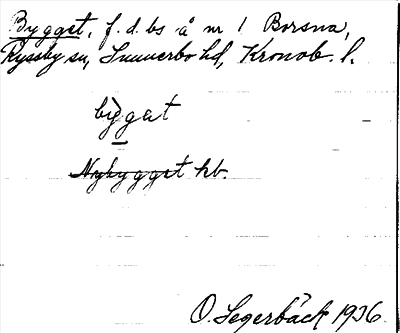 Bygget, f. d. bs å nr 1 Borsna,
Ryssby sn, Sunnerbo hd, Kronob. l.
bỳgat
Nybygget hb.
O. Segerbäck 1936